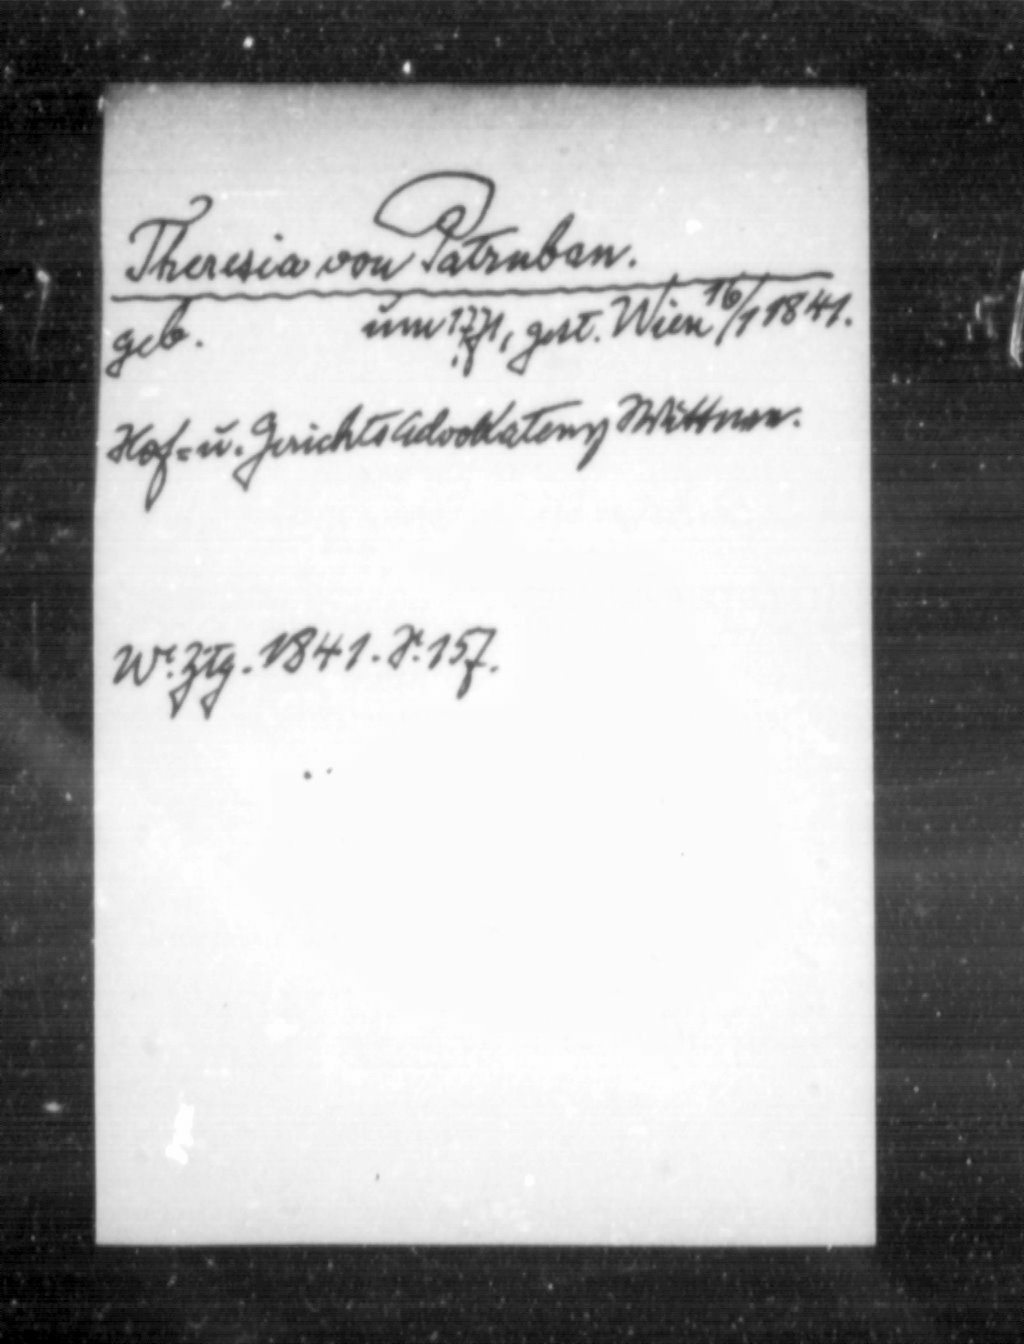 Theresia von Patruban.
geb. um 1771, gest. Wien 16/1 1841.
Hof- u. Gerichtsadvokatens Wittwe.
Wr. Ztg. 1841. S. 157.